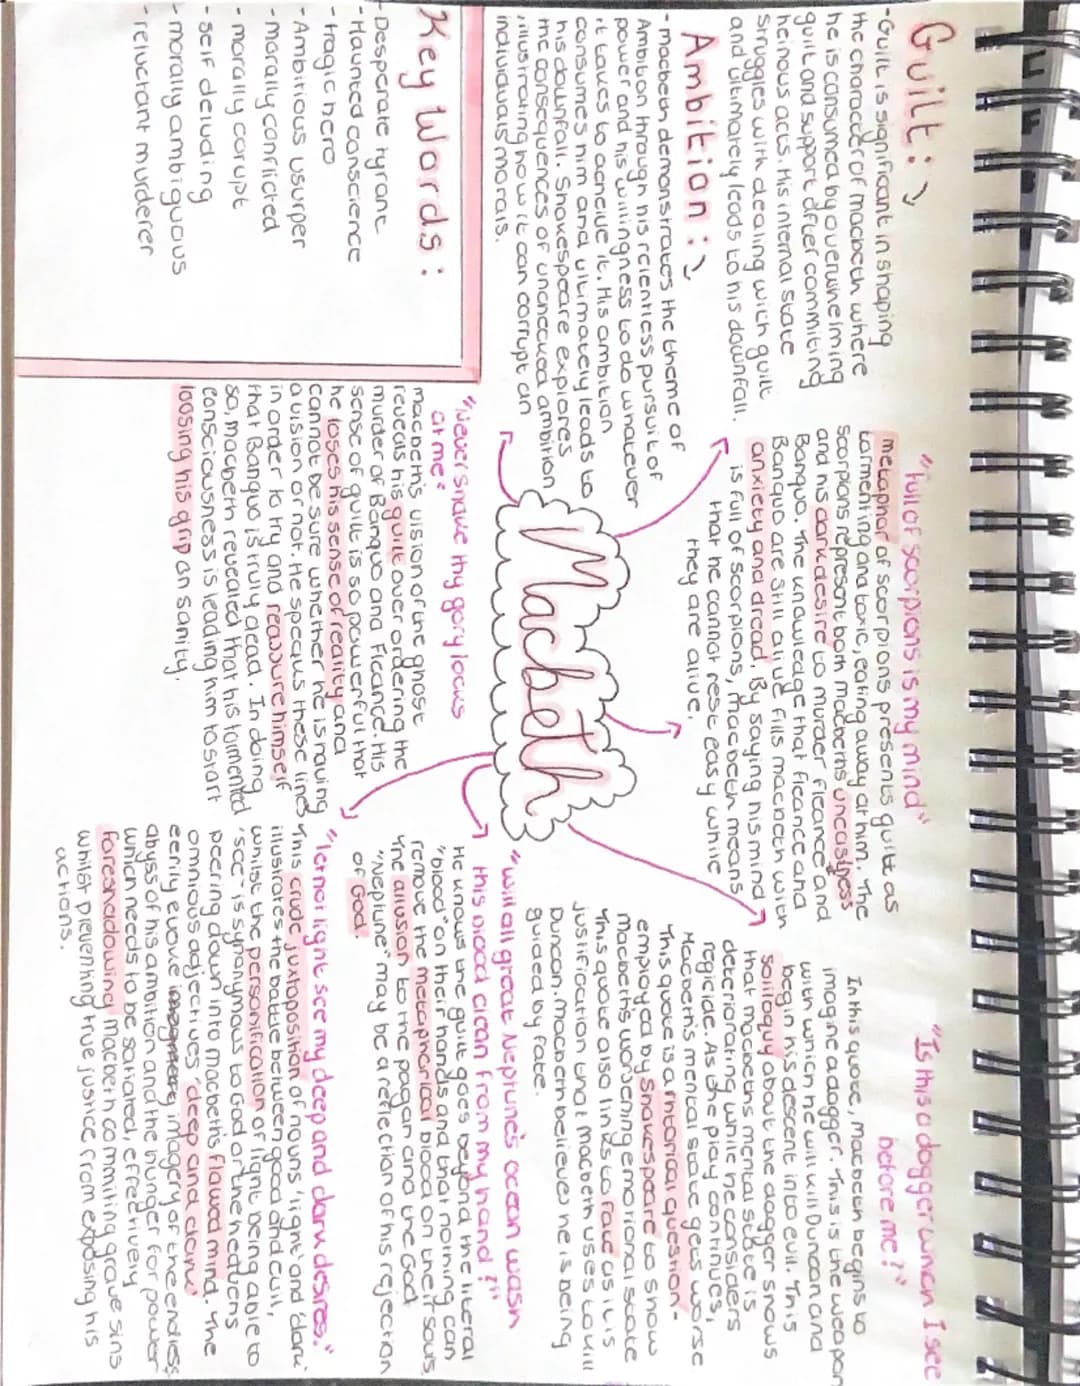 Guilt :
- Guilt is significant in shaping
the character of macbeth where
he is consumed by overwhelming
guilt and support after commiting
heinous acts. His internal state
struggles with dealing with guilt
and ultimately leads to his downfall.
Ambition :
- macbeth demonstrates the theme of
Ambition through his relentless pursuit of
power and his willingness to do whatever
it takes to acheive it. His ambition
consumes him and ultimately leads to
his downfall. Shakespeare explores
the consequences of unchecked ambition
, illustrating how it can corrupt an
individuals morals.
Key Words :
- Desperate tyrant
- Haunted conscience
- tragic hero
- Ambitious usurper
- Morally conflicted
- morally corupt
- self deluding
- morally ambiguous
- reluctant murderer
Macbeth
"full of scorpions is my mind"
metaphor of scorpions presents guilt as
tormenting and toxic, eating away at him. The
scorpions represent both macbeths uneasiness
and his dark desire to murder fleance and
Banquo. The knowledge that fleance and
Banquo are still alive fills macbeth with
anxiety and dread. By saying his mind
is full of scorpions, macbeth means
that he cannot rest easy while
they are alive.
"Never shake thy gory locks
at me"
macbeth's vision of the ghost
reveals his guilt over ordering the
murder of Banquo and Fleance. His
sense of guilt is so powerful that
he loses his sense of reality and
cannot be sure whether he is having
a vision or not. He speaks these lines
in order to try and reassure himself
that Banquo is truly dead. In doing
so, macbeth revealed that his tormented
consciousness is leading him to start
loosing his grip on sanity.
"Is this a dagger which I see
before me?"
In this quote, macbeth begins to
imagine a dagger. This is the weapon
with which he will kill Duncan and
begin his descent into evil. This
soliloquy about the dagger shows
that macbeths mental state is
deteriorating while he considers
regicide. As the play continues,
Macbeth's mental state gets worse
This quote is a rhetorical question -
employed by Shakespeare to show
macbeth's worsening emotional state
This quote also links to fate as it is
justification that macbeth uses to kill
Duncan. macbeth believes he is being
guided by fate.
"will all great Neptune's ocean wash
this blood clean from my hand?"
He knows the guilt goes beyond the literal
"blood" on their hands and that nothing can
remove the metaphorical blood on their souls.
The allusion to the pagan and the God
"Neptune" may be a reflection of his rejection
of God.
"let not light see my deep and dark desires."
This crude juxtaposition of nouns 'light' and 'dark'
illustrates the battle between good and evil,
whilst the personification of light being able to
'see' is synonymous to God or the heavens
peering down into macbeth's flawed mind. The
omnious adjectives 'deep and dark'
eerily evoke imagery of the endless
abyss of his ambition and the hunger for power
which needs to be satiated, effectively
foreshadowing macbeth commiting grave sins
whilst preventing true justice from exposing his
actions.